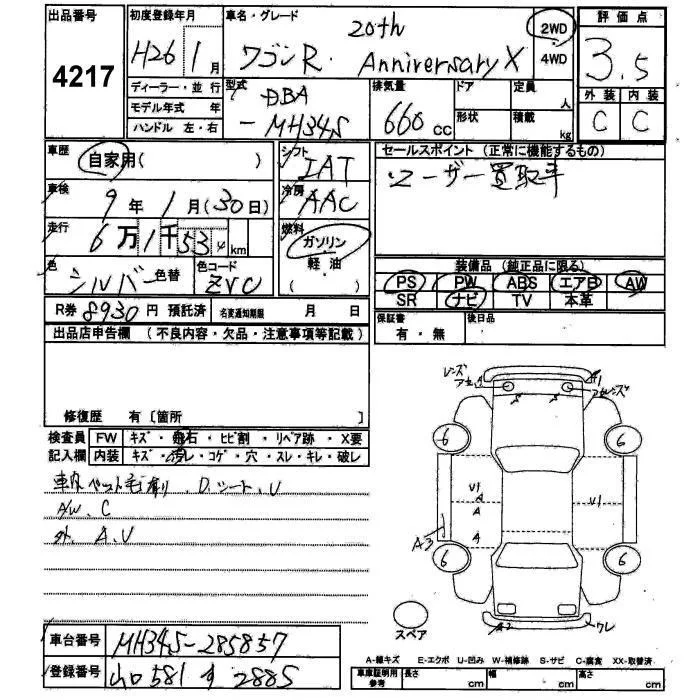 出品番号
4217
初度登録年月
H26 1月
車名・グレード
ワゴンR. 20th Anniversary X
2WD
4WD
評価点
3.5
外装 内装
C C
ディーラー・並行
モデル年式 年
ハンドル 左・右
型式
DBA
-MH34S
排気量
660cc
ドア
形状
定員
人
積載
kg
車歴
自家用( )
車検
9年1月(30日)
走行
6万1千53 km
色
シルバー 色替
色コード
ZVC
シフト
IAT
冷房
AAC
燃料
ガソリン
軽・油
( )
セールスポイント(正常に機能するもの)
・ユーザー買取車
装備品(純正品に限る)
PS PW ABS エアB AW
SR ナビ TV 本革
保証書
有・無
後日品
R券 8930円 預託済 名変通知期限 月 日
出品店申告欄(不良内容・欠品・注意事項等記載)
修復歴 有〔箇所 〕
検査員
記入欄
FW キズ・飛石・ヒビ割・リペア跡・X要
内装 キズ・汚レ・コゲ・穴・スレ・キレ・破レ
車内ペット毛有り、D.シート、U
A/W、C
外、A、U
レンズ
A1
レンズ
6
6
6
6
U1
A
A
A
U1
A3
A2
ワレ
スペア
A-線キズ E-エクボ U-凹み W-補修跡 S-サビ C-腐食 XX-取替済
車台番号
MH34S-285857
登録番号
山口581 す 2885
車庫証明用
参考
長さ cm
幅 cm
高さ cm